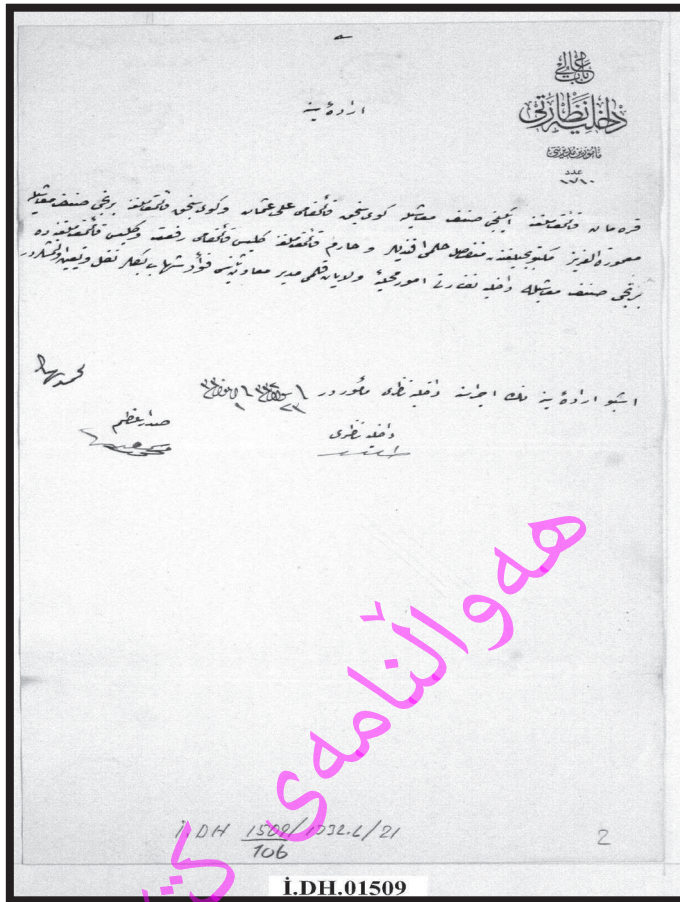 باب عالی
داخلیه نظارتی
مأمورین مدیریتی
عدد
اراده سنیه
قره مان قائممقاملغنه ایکنجی صنف معاشیله کوی سنجق قائممقامی علی عثمان و کوی سنجق قائممقاملغنه برنجی صنف معاشیله
معمورة العزیز مکتوبجیلغندن منفصل حلمی افندیلر و حارم قائممقاملغنه کلیس قائممقامی رفعت و کلیس قائممقاملغنه ده
برنجی صنف معاشیله داخلیه نظارتی امور محلیهٔ ولایات قلمی مدیر معاونی فؤاد شهاب بکلر نقل و تعیین
اشبو ارادهٔ سنیه نك اجراسنه داخلیه ناظری مأموردر
داخلیه ناظری
صدر اعظم
هەواڵنامەی
İ.DH 1509/1332.L/21
106
2
İ.DH.01509